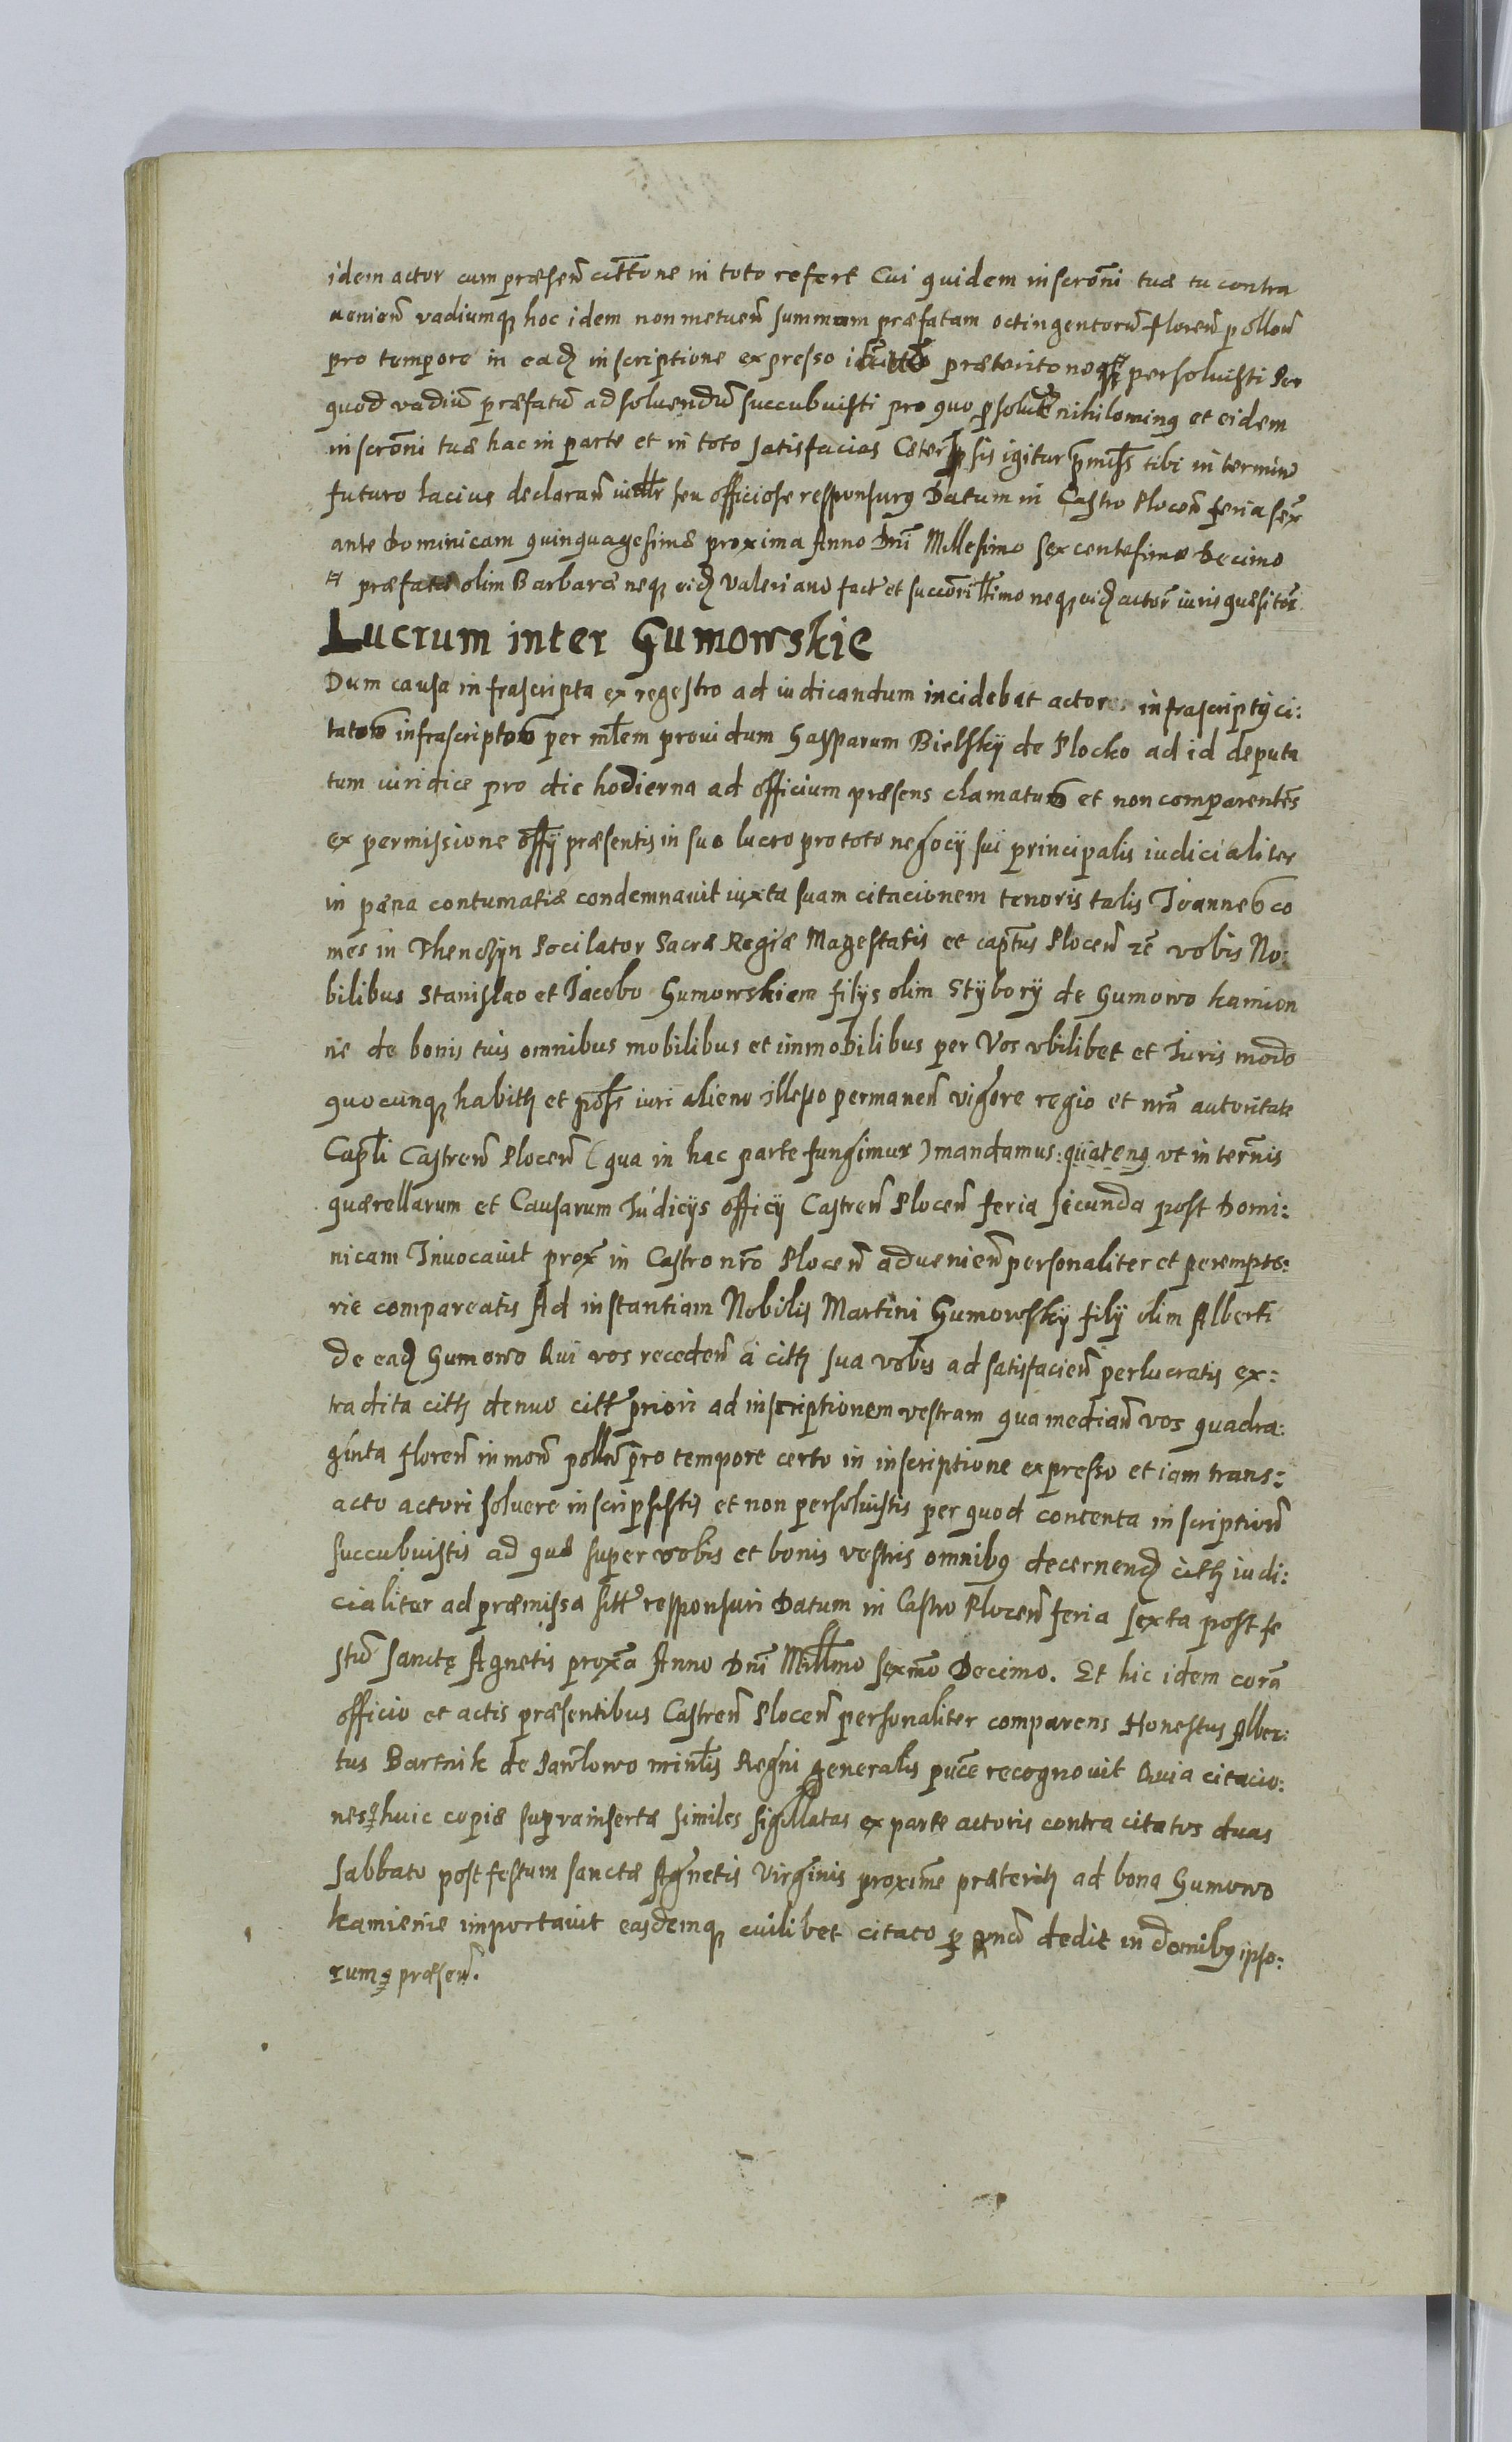 idem actor cum præseñ citt̃one in toto refert Cui quidem inscrõni tuæ tu contra
venieñ vadiumq hoc idem non metueñ summam præfatam octingentorũ floreñ polloñ
pro tempore in eadẽ inscriptione expresso præterito neq persoluisti Per
quod vadiũ præfatũ ad soluendũ succubuisti pro quo nihilominq et eidem
inscrõni tuæ hac in parte et in toto satisfacias sis igitur p̃miss tibi in termino
futuro lacius declaram̃ seu officiose responsurq Datum in Castro Ploceñ feria sex̃
ante dominicam quinquagesimæ proxima Anno Dnĩ Millesimo sexcentesimo Decimo
præfatæ olim Barbaræ neq eidẽ Valeriano fact et neq eidẽ actor̃ iuris quæsitor̃
Lucrum inter Gumowskie
Dum causa infrascripta ex regestro ad iudicandum incidebat actor infrascriptus ci:
tatos infrascriptos per ml̃em prouidum Gasparum Bielsky de Plocko ad id deputa
tum iuridice pro die hodierna ad officium præsens clamatos et non comparentes
ex permissione offy præsentis in suo lucro pro toto negocy sui principalis iudicialiter
in pæna contumatiæ condemnauit iuxta suam citacionem tenoris talis Joannes co
mes in Thenczyn Pocilator Sacræ Regiæ Magestatis et captñus Ploceñ rc̃ vobis No:
bilibus Stanislao et Jacobo Gumowskiem filys olim Stybory de Gumowo kamion
nie de bonis tuis omnibus mobilibus et immobilibus per Vos vbilibet et Juris modo
quocunq habitẽ et poss̃ iuri alieno illęso permaneñ vigore regio et nr̃a autoritate
Capl̃i Castreñ Ploceñ (qua in hac parte fungimur) mandamus: quatenq vt in term̃is
quærellarum et Causarum Judicys officy Castreñ Ploceñ feria secunda post Domi:
nicam Invocavit prox̃ in Castro nr̃o Ploceñ advenieñ personaliter et perempto:
rie compareatis Ad instantiam Nobilis Martini Gumowsky fily olim Alberti
de eadẽ Gumowo Qui vos recedeñ à citt̃ sua vobis ad satisfacieñ perlucratis ex:
tradita citt̃ denuo citt̃ priori ad inscriptionem vestram qua mediañ vos quadra:
ginta floreñ in moñ polloñ pro tempore certo in inscriptione expresso et iam trans:
acto actori soluere inscripsistis et non persoluistis per quod contenta inscriptioñ
succubuistis ad quæ super vobis et bonis vestris omnibq decernendẽ citt̃ iudi:
cialiter ad præmissa sitt̃ responsuri Datum in Castro Ploceñ feria sexta post fe
stũ Sanctę Agnetis prox̃a Anno Dnĩ Mill̃mo sexm̃o Decimo. Et hic idem corã
officio et actis præsentibus Castreñ Ploceñ personaliter comparens Honestus Alber:
tus Bartnik de Pawlowo minl̃is Regni generalis puc̃e recognovit Quia citacio:
nes huic copiæ suprainsertæ similes sigillatas ex parte actoris contra citatos duas
Sabbato post festum Sanctæ Agnetis Virginis proxime præteritẽ ad bona Gumowo
kamienie importavit easdemq cuilibet citato dedit in domibq ipso:
rum præseñ.